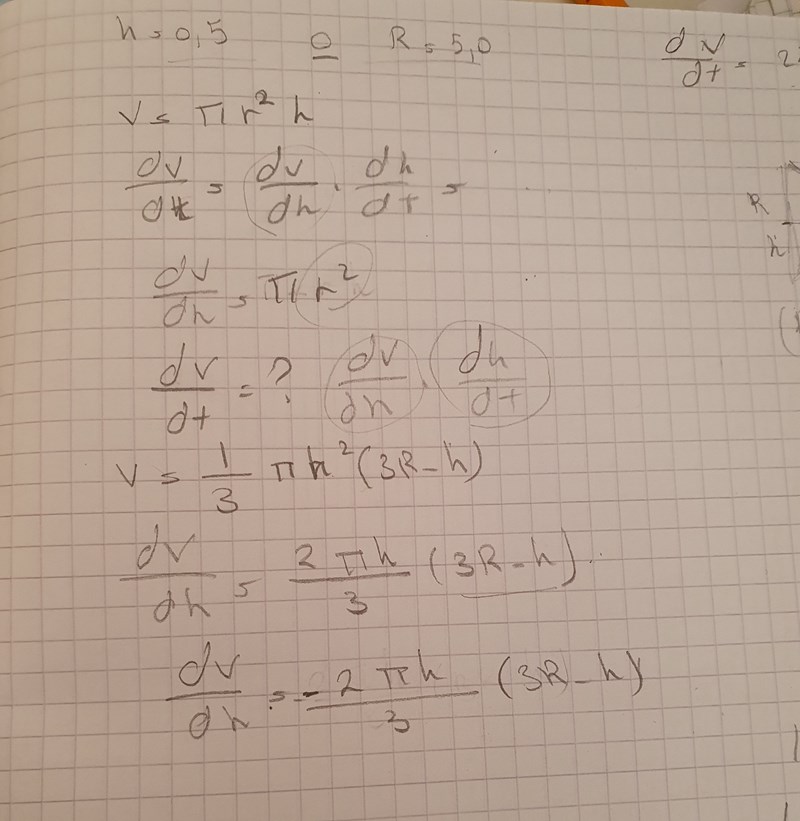 h = 0,5 O R = 5,0 dv/dt = 2
V = π r² h
dv/dt = dv/dh · dh/dt =
R
h
dv/dh = π r²
dv/dt = ? dv/dh · dh/dt
V = 1/3 π h² (3R - h)
dv/dh = 2πh/3 (3R - h)
dv/dh = -2πh/3 (3R - h)